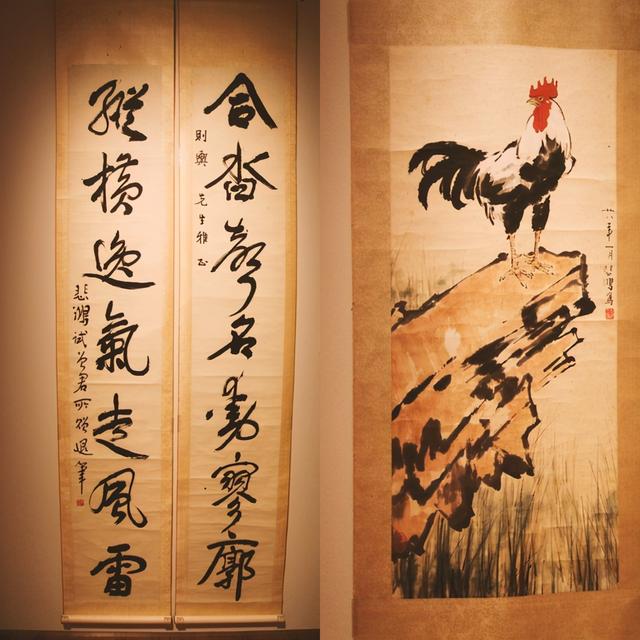 合沓聲名動寥廓
則興先生雅正
縱橫逸氣走風雷
悲鴻試君所貽退筆
廿八年一月悲鴻寫